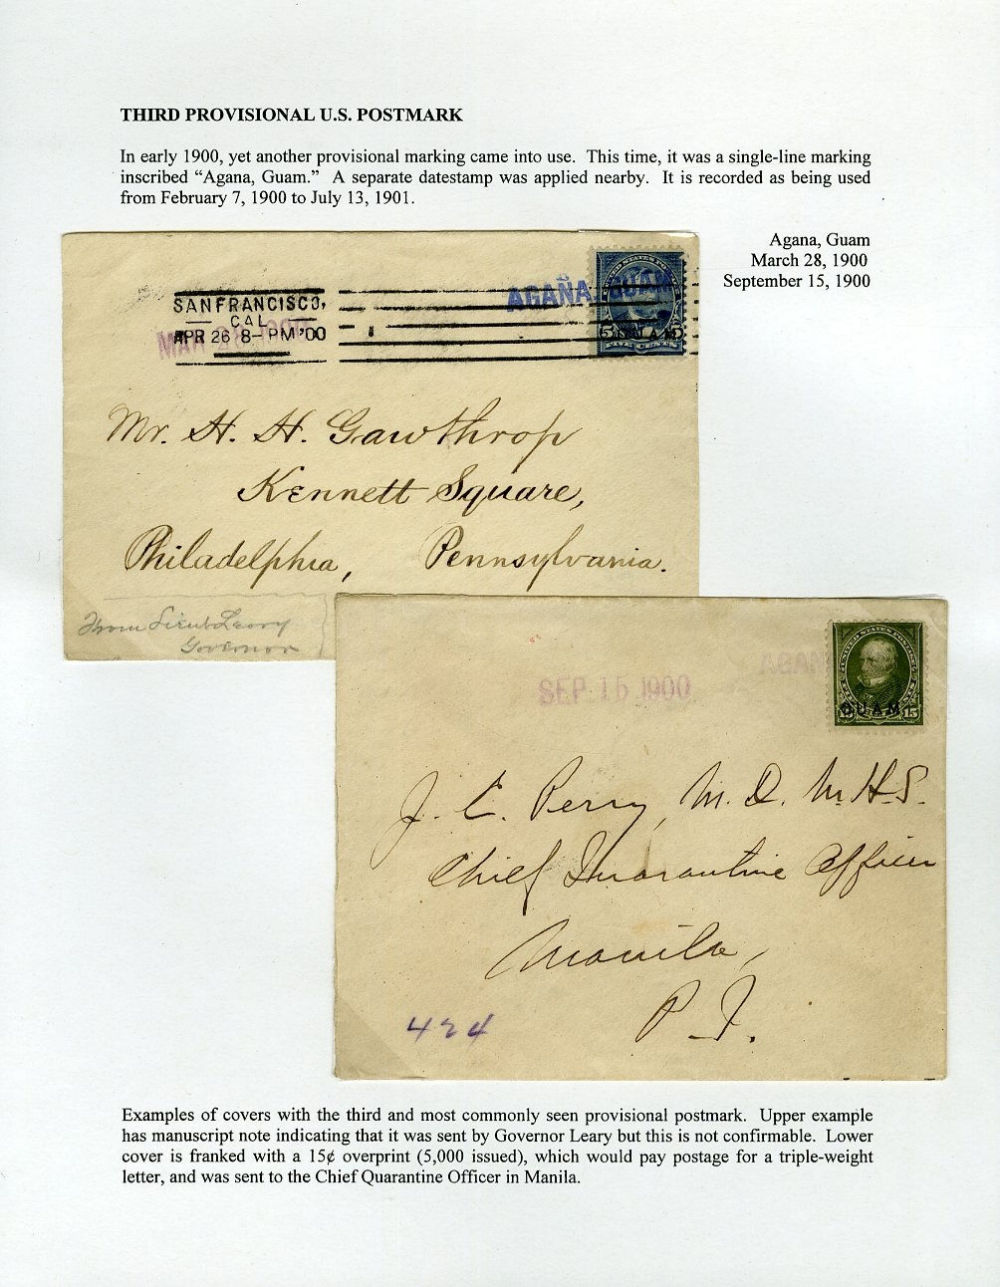 THIRD PROVISIONAL U.S. POSTMARK
In early 1900, yet another provisional marking came into use. This time, it was a single-line marking
inscribed “Agana, Guam.” A separate datestamp was applied nearby. It is recorded as being used
from February 7, 1900 to July 13, 1901.
Agana, Guam
March 28, 1900
September 15, 1900
AGAÑA, GUAM
SAN FRANCISCO,
CAL
APR 26 8-PM '00
MAR 28 1900
5 GUAM 5
Mr. H. H. Gawthrop
Kennett Square,
Philadelphia, Pennsylvania.
From Lieut Leary
Governor
AGAN
SEP 15 1900
GUAM
15
J. E. Perry, M. D. M. H. S.
Chief Quarantine Officer
Manila,
P. I.
424
Examples of covers with the third and most commonly seen provisional postmark. Upper example
has manuscript note indicating that it was sent by Governor Leary but this is not confirmable. Lower
cover is franked with a 15¢ overprint (5,000 issued), which would pay postage for a triple-weight
letter, and was sent to the Chief Quarantine Officer in Manila.